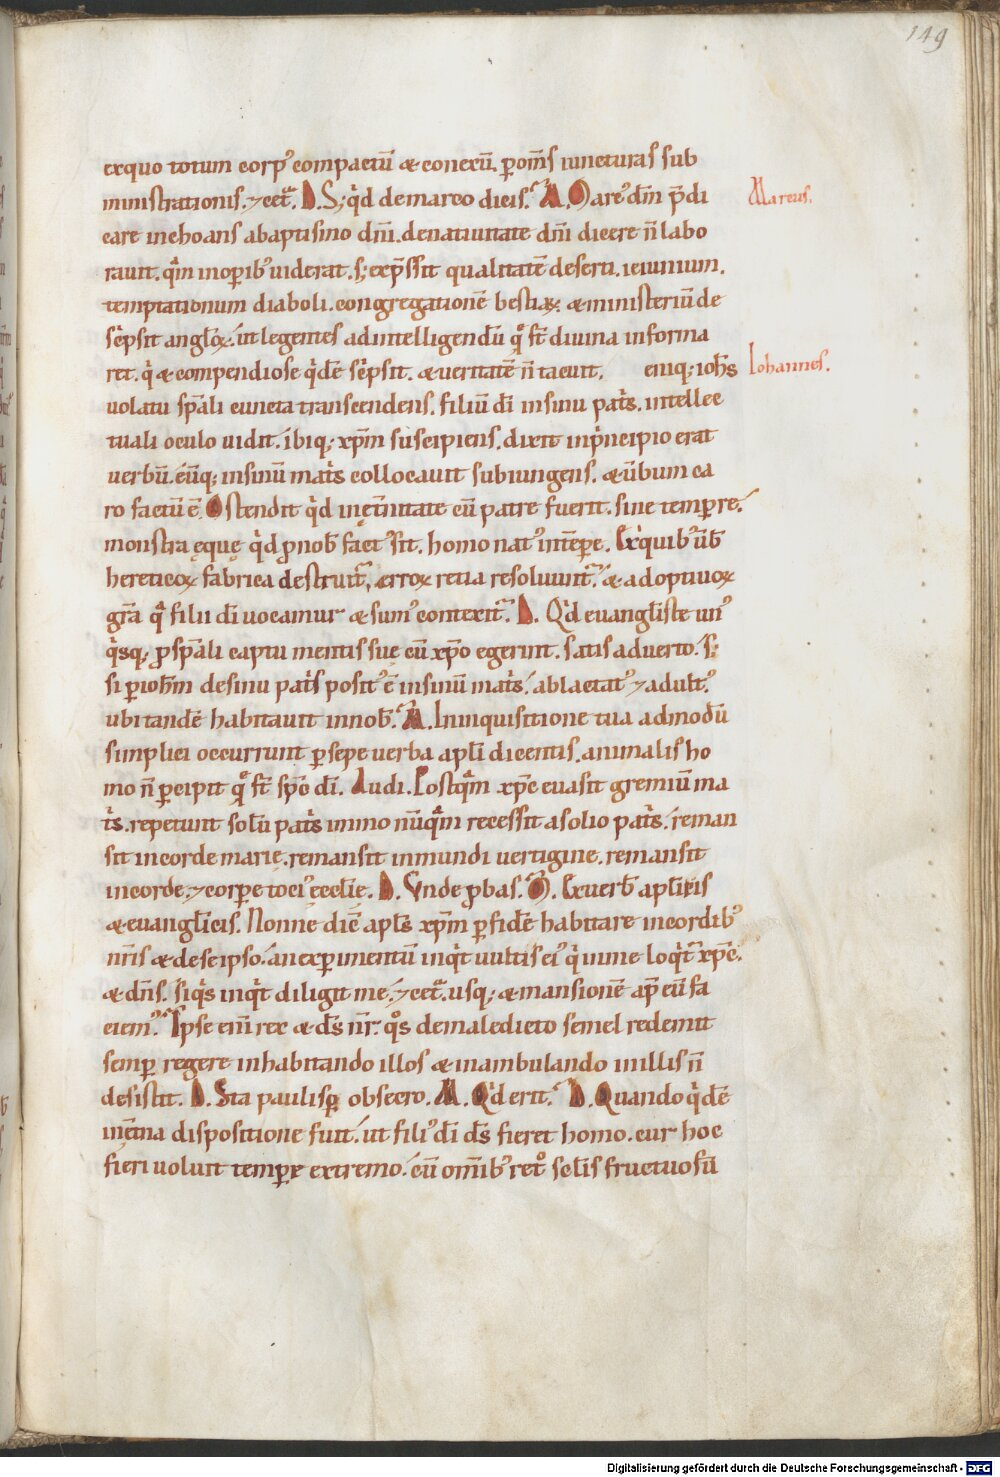 149
exquo totum corp' compactū & conexū. p om̄s iuncturas sub
ministrationis. ⁊ cet̄. D. S; q̇d de marco dicis. M. Marc' dn̄m p̄di
care inchoans a baptismo dn̄i. de natiuitate dn̄i dicere n̄ labo
rauit. q̄m in opib' uiderat. s; exp̄ssit qualitatē deserti. ieiunium.
temptationum diaboli. congregationē bestiaꝝ. & ministeriū de
sc̄psit angl̄oꝝ. ut legentes ad intelligendū q̄ st̄ diuina informa
ret. q̇ & compendiose q̇dē sc̄psit. & ueritatē n̄ tacuit. eniq; ioh̄s
Marcus.
Iohannes.
uolatu sp̄ali cuncta transcendens. filiū dī in sinu pat̄s. intellec
tuali oculo uidit. ibiq; xp̄m suscipiens. dixit in ṗncipio erat
uerbū. eūq; in sinū mat̄s collocauit subiungens. & ūbum ca
ro factū ē. Ostendit q̇d in ęt̄nitate cū patre fuerit. sine tempre.
monstra ęquę q̇d p nob̄ fact' sit. homo nat' in tēpe. Ex quib' ūb̄
hereticoꝝ fabrica destruit̄, erroꝝ retia resoluunt̄. & adoptiuoꝝ
gr̄a q̄ filii dī uocamur & sum' contexit̄. D. Q'd euangl̄iste un'
q̇sq; p sp̄ali captu mentis suę cū xp̄o egerint. satis aduerto. s;
si p ioh̄m de sinu pat̄s posit' ē in sinū mat̄s. ablactat' ⁊ adult'.
ubi tandē habitauit in nob̄. M. In inquisitione tua admodū
simplici occurrunt p sepe uerba apl̄i dicentis. animalis ho
mo n̄ pcipit q̄ st̄ sp̄c dī. Audi. Postq̄m xp̄c euasit gremiū ma
t̄s. repetiit soliū pat̄s immo nūq̄m recessit a solio pat̄s. reman
sit in corde marię. remansit in mundi uertigine. remansit
in corde. ⁊ corpe toci' ęccl̄ie. D. Vnde pbas. M. Ex uerb̄ apl̄icis
& euangl̄icis. Nonne diē apl̄s xp̄m p fidē habitare in cordib'
nr̄is & de se ipso. an expimentū inq̇t uultis ei' q̇ in me loq̇t̄ xp̄c.
& dn̄s. Siq̇s inq̇t diligit me. ⁊ cet̄. usq; & mansionē ap̄ eū fa
ciem'. Ipse eni rex & ds̄ nr̄. q̊s de maledicto semel redemit
semp regere inhabitando illos & inambulando in illis n̄
desistit. D. Sta paulisp obsecro. M. Q'd erit. D. Quando q̇dē
in ęt̄na dispositione fuit. ut fili' dī ds̄ fieret homo. cur hoc
fieri uoluit tempe extremo. cū om̄ib' ret° sc̄lis fructuosū
Digitalisierung gefördert durch die Deutsche Forschungsgemeinschaft - DFG